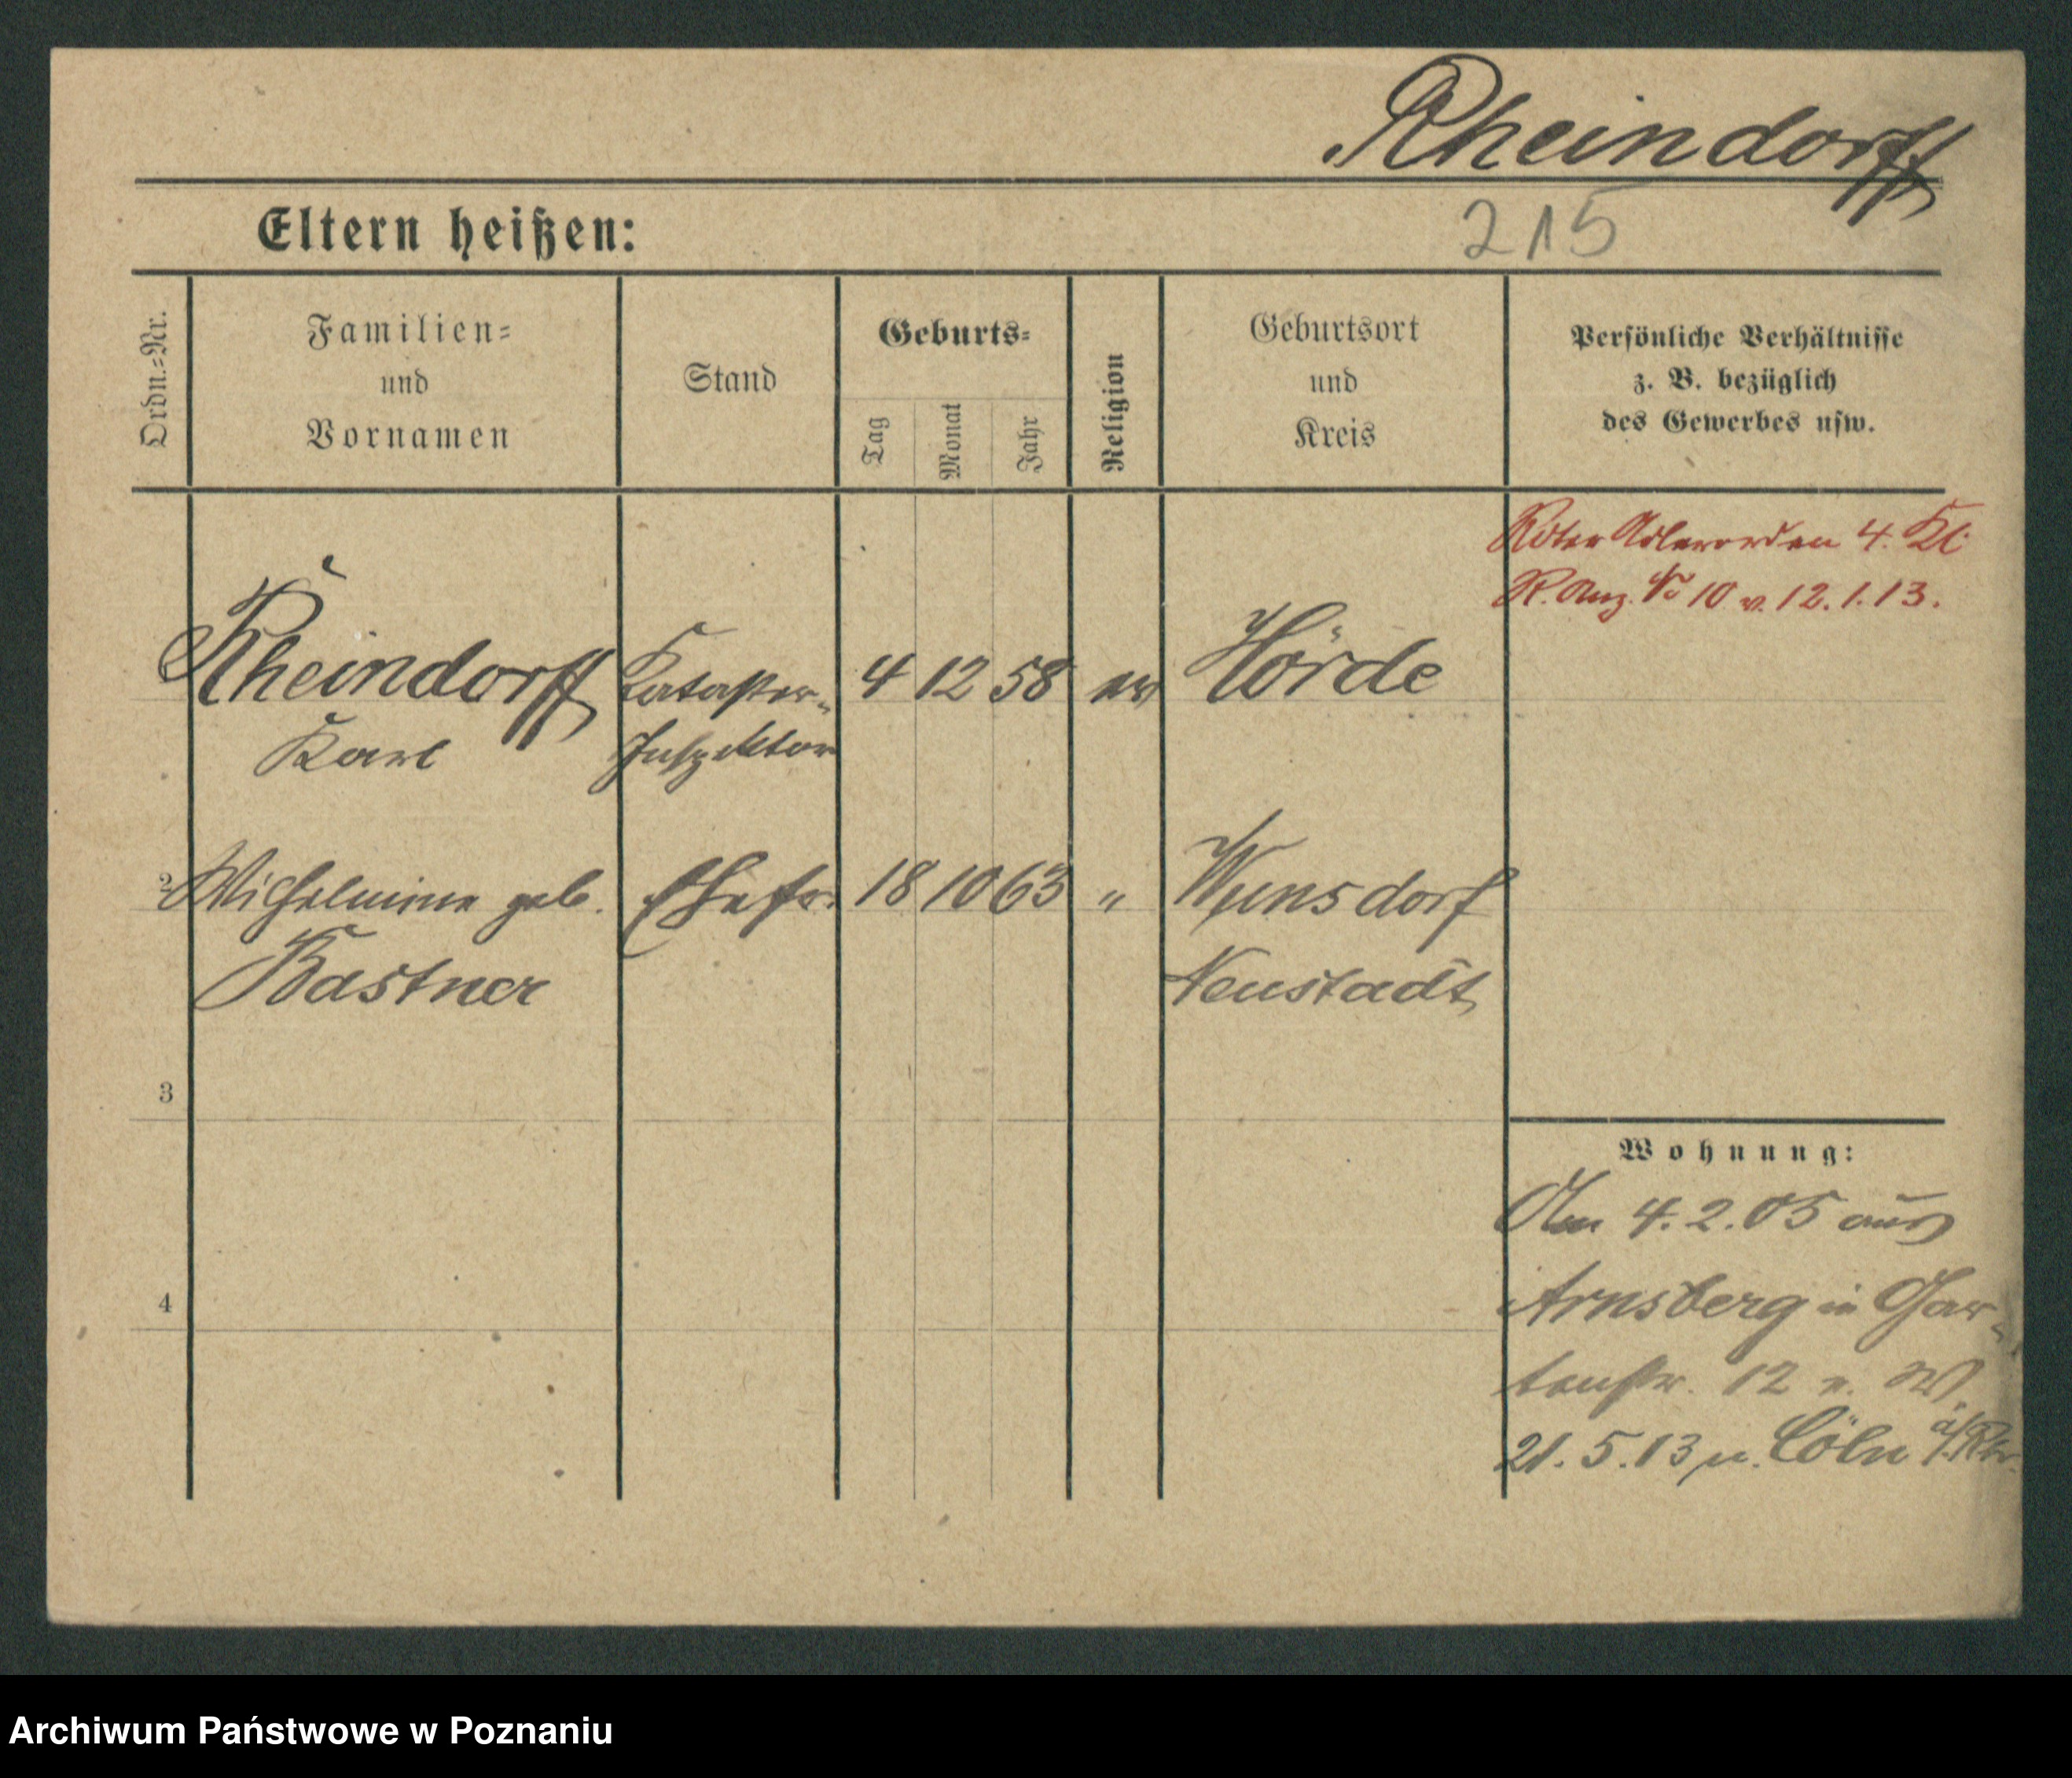 Rheindorff
Eltern heißen:
215
Ordn.=Nr.
Familien=
und
Vornamen
Stand
Geburts=
Tag
Monat
Jahr
Religion
Geburtsort
und
Kreis
Persönliche Verhältnisse
z. B. bezüglich
des Gewerbes usw.
Roter Adlerorden 4. Kl.
R. Anz. No 10 v. 12.1.13.
Rheindorff Kataster- 4 12 58 ev Hörde
Karl Inspektor
2 Wilhelmine geb. Ehefr. 18 10 63 " Wunsdorf
Bastner Neustadt
3
Wohnung:
Am 4.2.05 aus
Arnsberg in Gar-
4
tenstr. 12 W
21.5.13 n. Cöln a/Rh.
Archiwum Państwowe w Poznaniu